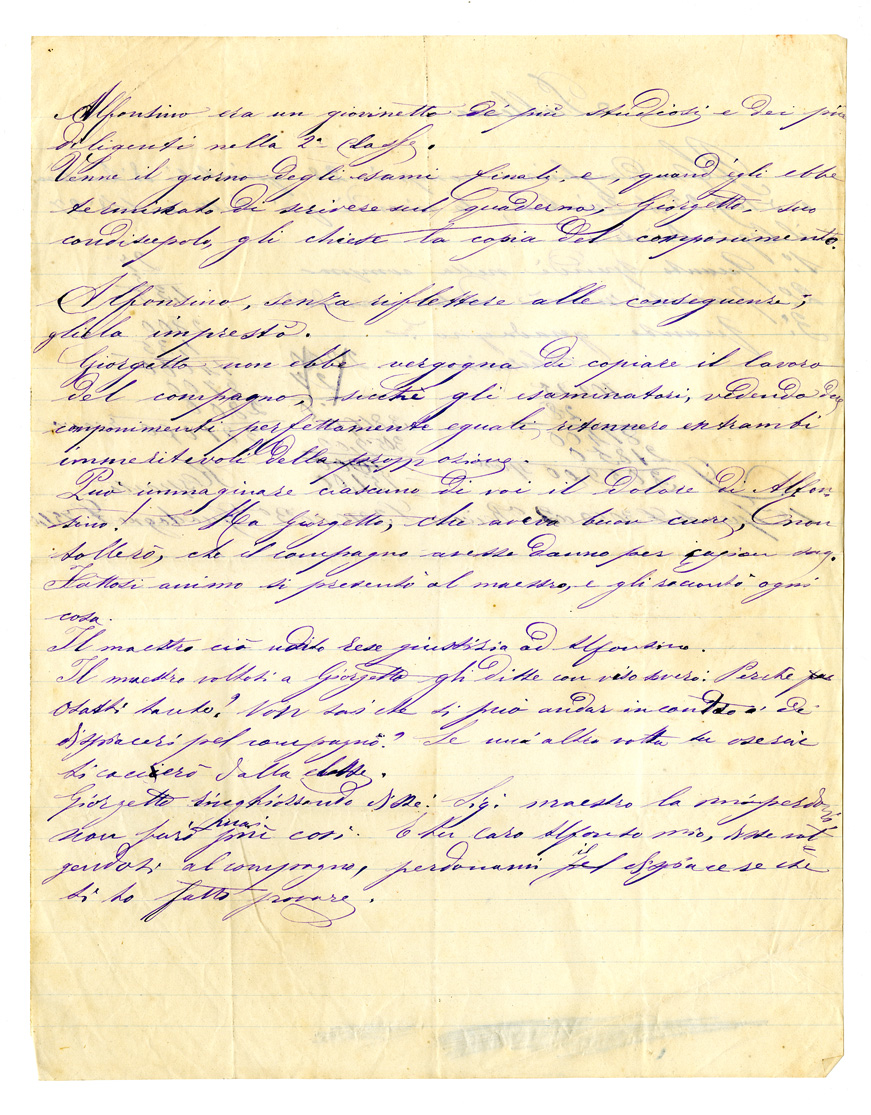 Alfonsino era un giovinetto de' più studiosi e dei più
diligenti nella 2ª classe.
Venne il giorno degli esami finali, e, quand'egli ebbe
terminato di scrivere sul quaderno, Giorgetto, suo
condiscepolo, gli chiese la copia del componimento.
Alfonsino, senza riflettere alle conseguenze,
gliela imprestò.
Giorgetto non ebbe vergogna di copiare il lavoro
del compagno, sicchè gli esaminatori, vedendo due
componimenti perfettamente eguali, ritennero entrambi
immeritevoli della promozione.
Può immaginare ciascuno di voi il dolore di Alfon-
sino! Ma Giorgetto, che aveva buon cuore, non
tollerò, che il compagno avesse danno per cagion sua.
Fattosi animo si presentò al maestro, e gli raccontò ogni
cosa.
Il maestro ciò udito rese giustizia ad Alfonsino.
Il maestro voltosi a Giorgetto gli disse con viso severo: Perchè
osasti tanto? Non sai che si può andar incontro a dei
dispiaceri pel compagno? Se un'altra volta tu oserai
ti caccierò dalla classe.
Giorgetto singhiozzando disse: Sig. maestro la mi perdoni
non farò mai più così. E tu caro Alfonso mio, disse vol=
gendosi al compagno, perdonami il dispiacere che
ti ho fatto provare.